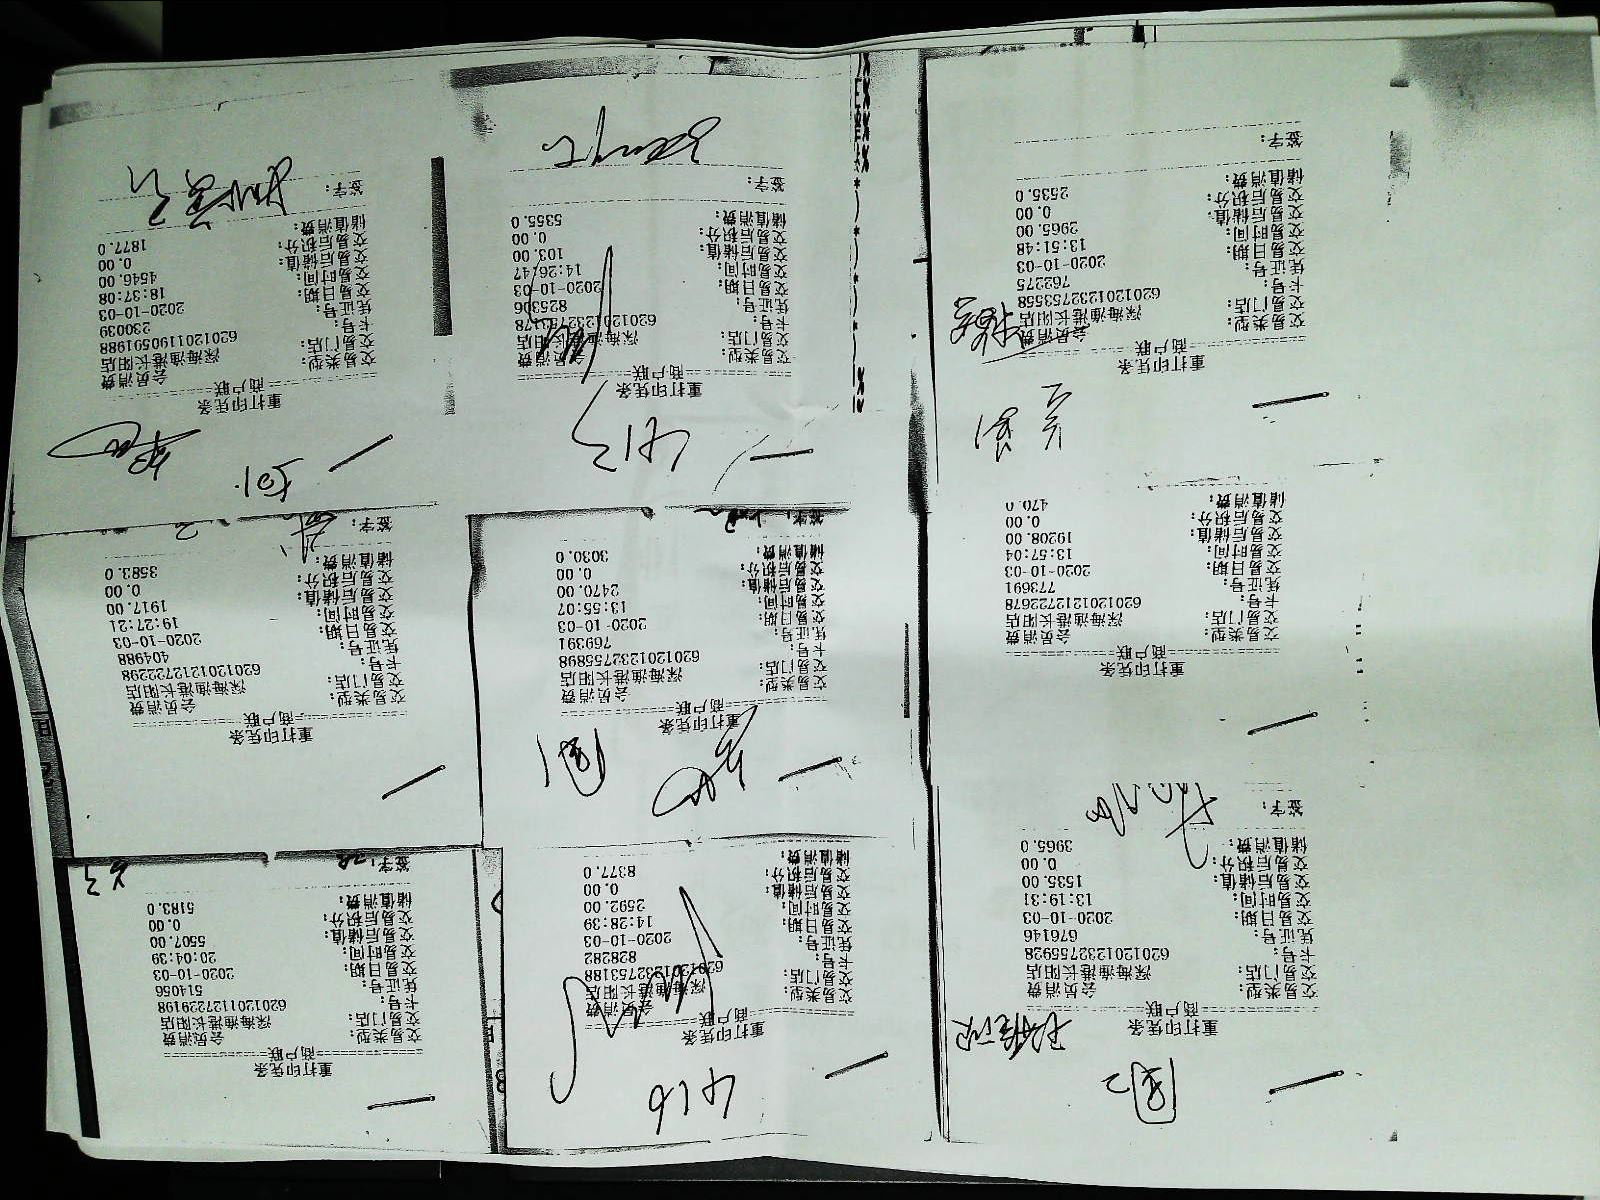 重打印凭条
商户联
交易类型: 会员消费
交易门店: 深海渔港长阳店
卡号: 6201201232755928
凭证号: 676146
交易日期: 2020-10-03
交易时间: 13:19:31
交易后储值: 1535.00
交易后积分: 0.00
储值消费: 3965.0
签字:
重打印凭条
商户联
交易类型: 会员消费
交易门店: 深海渔港长阳店
卡号: 6201201212722678
凭证号: 773691
交易日期: 2020-10-03
交易时间: 13:57:04
交易后储值: 19208.00
交易后积分: 0.00
储值消费: 470.0
重打印凭条
商户联
交易类型: 会员消费
交易门店: 深海渔港长阳店
卡号: 6201201232753558
凭证号: 762275
交易日期: 2020-10-03
交易时间: 13:51:48
交易后储值: 2965.00
交易后积分: 0.00
储值消费: 2535.0
签字:
重打印凭条
商户联
交易类型: 会员消费
交易门店: 深海渔港长阳店
卡号: 6201201232753188
凭证号: 828282
交易日期: 2020-10-03
交易时间: 14:28:39
交易后储值: 2592.00
交易后积分: 0.00
储值消费: 8377.0
重打印凭条
商户联
交易类型: 会员消费
交易门店: 深海渔港长阳店
卡号: 6201201232755898
凭证号: 769391
交易日期: 2020-10-03
交易时间: 13:55:07
交易后储值: 2470.00
交易后积分: 0.00
储值消费: 3030.0
签字:
重打印凭条
商户联
交易类型: 会员消费
交易门店: 深海渔港长阳店
卡号: 6201201232753178
凭证号: 825306
交易日期: 2020-10-03
交易时间: 14:26:47
交易后储值: 103.00
交易后积分: 0.00
储值消费: 5355.0
签字:
重打印凭条
商户联
交易类型: 会员消费
交易门店: 深海渔港长阳店
卡号: 6201201127229198
凭证号: 514056
交易日期: 2020-10-03
交易时间: 20:04:39
交易后储值: 5507.00
交易后积分: 0.00
储值消费: 5183.0
签字:
重打印凭条
商户联
交易类型: 会员消费
交易门店: 深海渔港长阳店
卡号: 6201201212722298
凭证号: 404988
交易日期: 2020-10-03
交易时间: 19:27:21
交易后储值: 1917.00
交易后积分: 0.00
储值消费: 3583.0
签字:
重打印凭条
商户联
交易类型: 会员消费
交易门店: 深海渔港长阳店
卡号: 6201201190591988
凭证号: 230039
交易日期: 2020-10-03
交易时间: 18:37:08
交易后储值: 4546.00
交易后积分: 0.00
储值消费: 1877.0
签字: